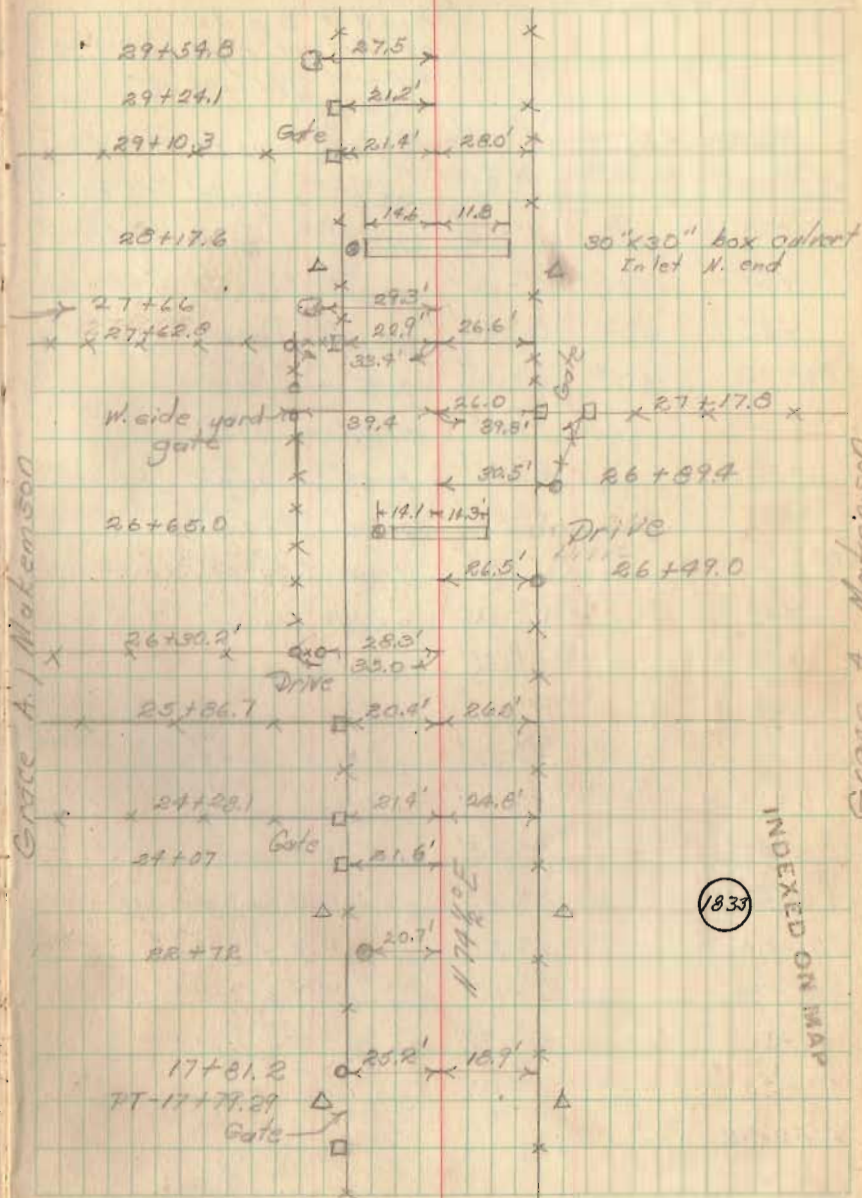 29+54.8 27.5
29+24.1 21.2'
29+10.3 Gate 21.4' 28.0'
14.6 11.8
28+17.6 30"x30" box culvert
Inlet N. end
27+66 29.3'
27+62.8 20.9' 26.6'
33.4'
Gate
W. side yard gate 39.4 26.0 39.8' 27+17.8
30.5' 26+89.4
14.1 11.3'
26+65.0 Drive
26.5' 26+49.0
26+30.2' 28.3'
33.0
Drive
25+86.7 20.4' 26.0'
24+28.1 21.4' 24.8'
Gate
24+07 21.6'
N 74½° E
22+72 20.7'
17+81.2 25.2' 18.9'
PT-17+79.29
Gate
Grace A. Makemson
1833
INDEXED ON MAP